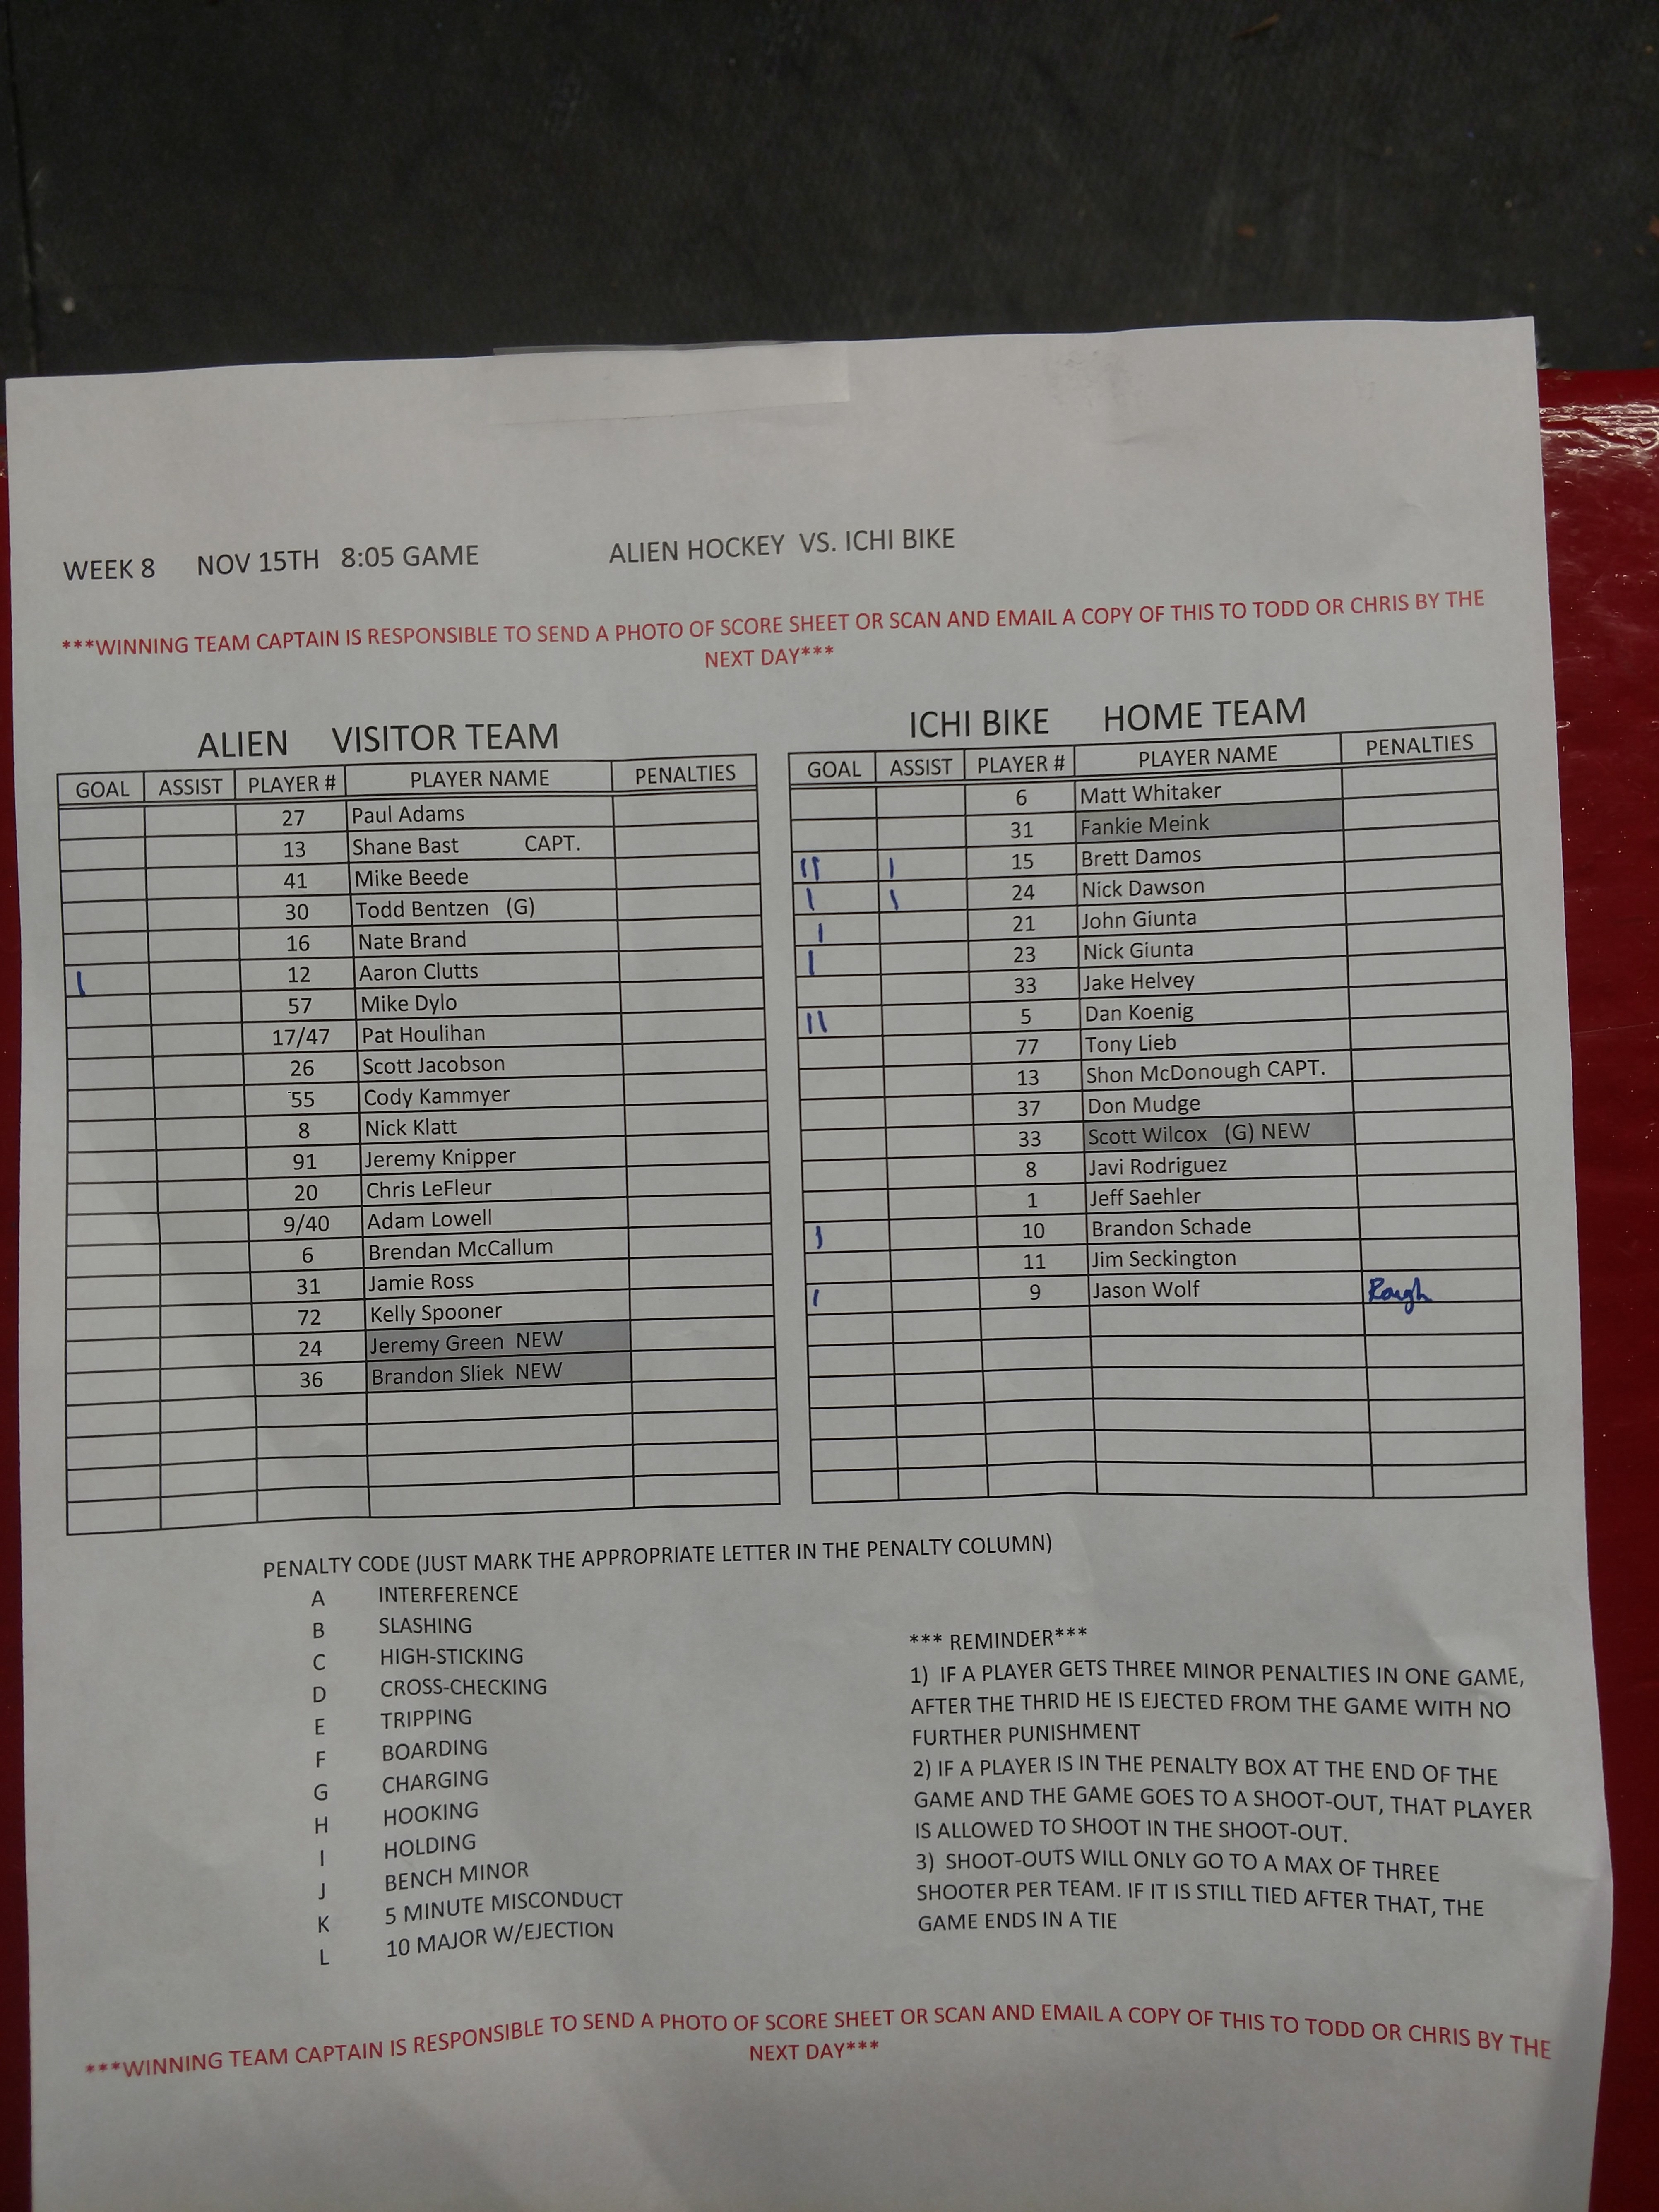 WEEK 8 NOV 15TH 8:05 GAME ALIEN HOCKEY VS. ICHI BIKE
***WINNING TEAM CAPTAIN IS RESPONSIBLE TO SEND A PHOTO OF SCORE SHEET OR SCAN AND EMAIL A COPY OF THIS TO TODD OR CHRIS BY THE
NEXT DAY***
ALIEN VISITOR TEAM
GOAL ASSIST PLAYER # PLAYER NAME PENALTIES
27 Paul Adams
13 Shane Bast CAPT.
41 Mike Beede
30 Todd Bentzen (G)
16 Nate Brand
| 12 Aaron Clutts
57 Mike Dylo
17/47 Pat Houlihan
26 Scott Jacobson
55 Cody Kammyer
8 Nick Klatt
91 Jeremy Knipper
20 Chris LeFleur
9/40 Adam Lowell
6 Brendan McCallum
31 Jamie Ross
72 Kelly Spooner
24 Jeremy Green NEW
36 Brandon Sliek NEW
ICHI BIKE HOME TEAM
GOAL ASSIST PLAYER # PLAYER NAME PENALTIES
6 Matt Whitaker
31 Fankie Meink
|| | 15 Brett Damos
| | 24 Nick Dawson
| 21 John Giunta
| 23 Nick Giunta
33 Jake Helvey
|| 5 Dan Koenig
77 Tony Lieb
13 Shon McDonough CAPT.
37 Don Mudge
33 Scott Wilcox (G) NEW
8 Javi Rodriguez
1 Jeff Saehler
| 10 Brandon Schade
11 Jim Seckington
| 9 Jason Wolf Rough
PENALTY CODE (JUST MARK THE APPROPRIATE LETTER IN THE PENALTY COLUMN)
A INTERFERENCE
B SLASHING
C HIGH-STICKING
D CROSS-CHECKING
E TRIPPING
F BOARDING
G CHARGING
H HOOKING
I HOLDING
J BENCH MINOR
K 5 MINUTE MISCONDUCT
L 10 MAJOR W/EJECTION
*** REMINDER***
1) IF A PLAYER GETS THREE MINOR PENALTIES IN ONE GAME,
AFTER THE THRID HE IS EJECTED FROM THE GAME WITH NO
FURTHER PUNISHMENT
2) IF A PLAYER IS IN THE PENALTY BOX AT THE END OF THE
GAME AND THE GAME GOES TO A SHOOT-OUT, THAT PLAYER
IS ALLOWED TO SHOOT IN THE SHOOT-OUT.
3) SHOOT-OUTS WILL ONLY GO TO A MAX OF THREE
SHOOTER PER TEAM. IF IT IS STILL TIED AFTER THAT, THE
GAME ENDS IN A TIE
***WINNING TEAM CAPTAIN IS RESPONSIBLE TO SEND A PHOTO OF SCORE SHEET OR SCAN AND EMAIL A COPY OF THIS TO TODD OR CHRIS BY THE
NEXT DAY***